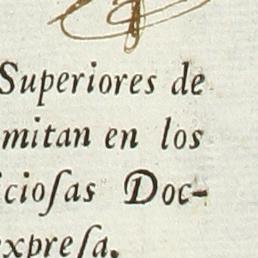 Superiores de
mitan en los
cioſas Doc-
expreſa.